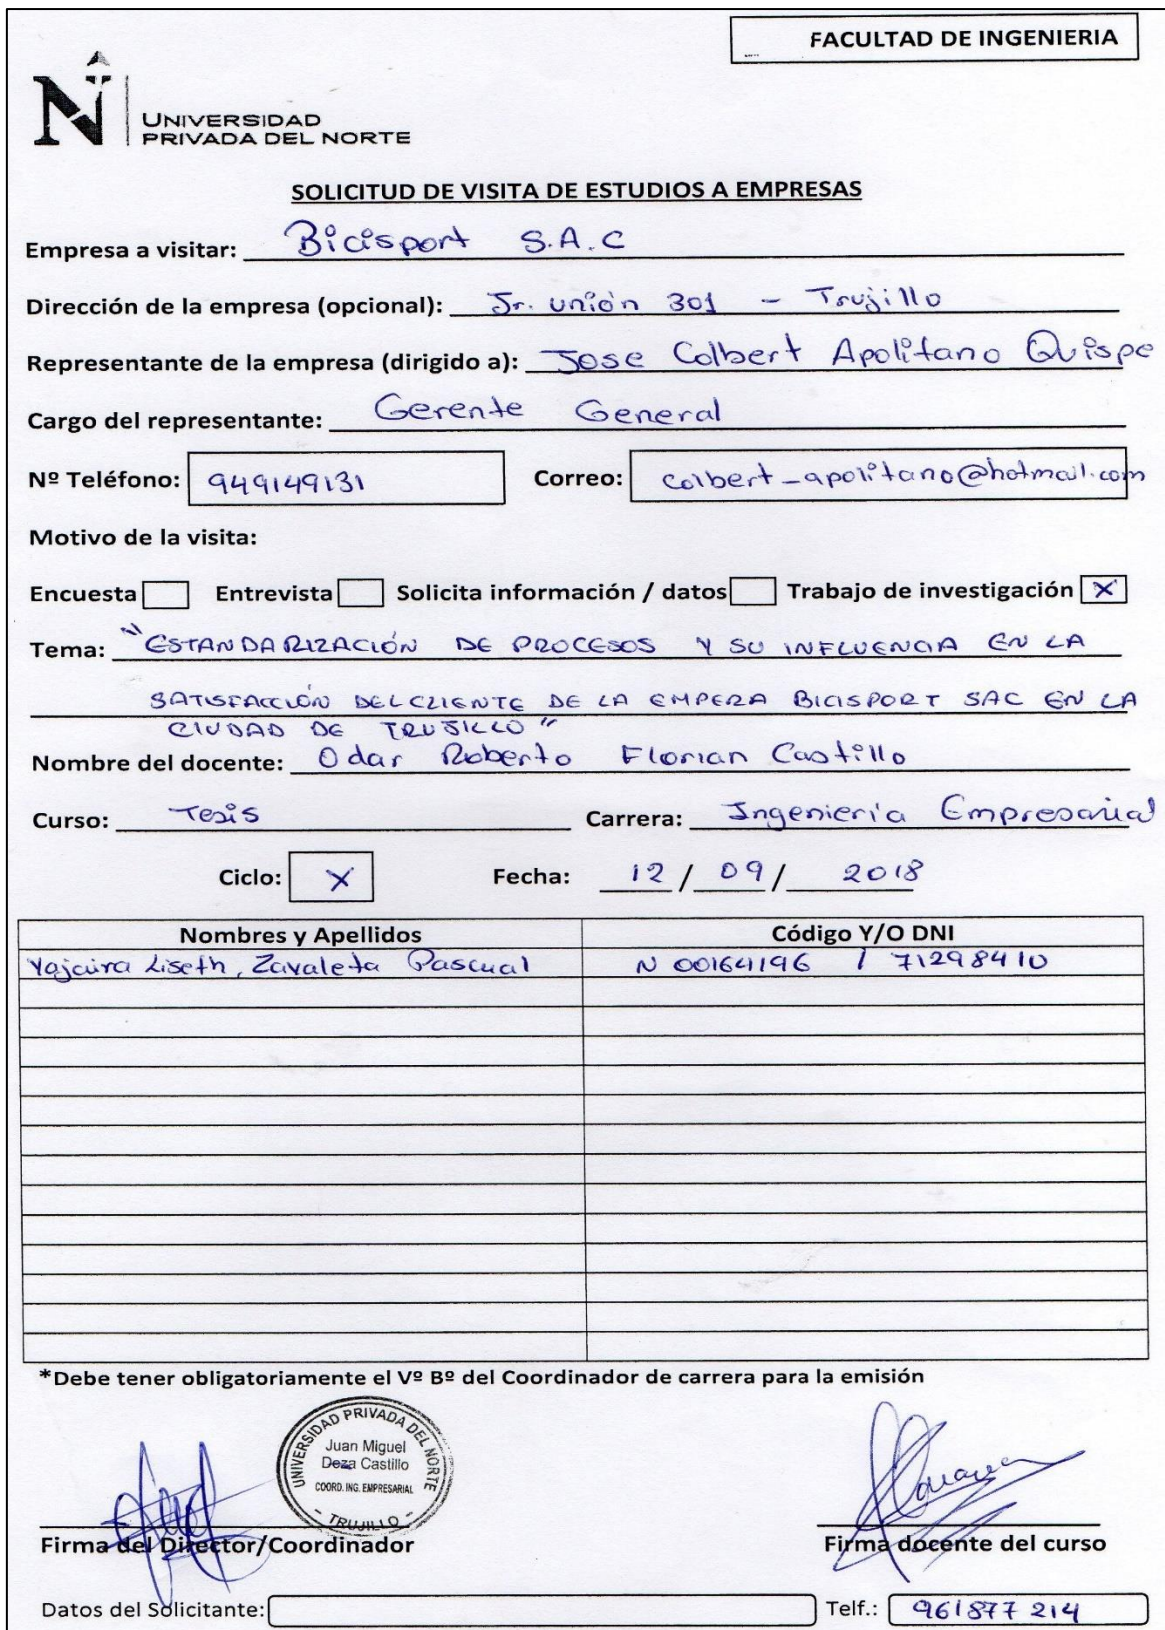 FACULTAD DE INGENIERIA
N
UNIVERSIDAD
PRIVADA DEL NORTE
SOLICITUD DE VISITA DE ESTUDIOS A EMPRESAS
Empresa a visitar: Bicisport S.A.C
Dirección de la empresa (opcional): Jr. unión 301 - Trujillo
Representante de la empresa (dirigido a): Jose Colbert Apolitano Quispe
Cargo del representante: Gerente General
Nº Teléfono: 949149131 Correo: colbert_apolitano@hotmail.com
Motivo de la visita:
Encuesta Entrevista Solicita información / datos Trabajo de investigación X
Tema: "ESTANDARIZACIÓN DE PROCESOS Y SU INFLUENCIA EN LA
SATISFACCIÓN DEL CLIENTE DE LA EMPERA BICISPORT SAC EN LA
CIUDAD DE TRUJILLO"
Nombre del docente: Odar Roberto Florian Castillo
Curso: Tesis Carrera: Ingeniería Empresarial
Ciclo: X Fecha: 12 / 09 / 2018
Nombres y Apellidos Código Y/O DNI
Yajaira Liseth, Zavaleta Pascual N 00164196 / 71298410
*Debe tener obligatoriamente el Vº Bº del Coordinador de carrera para la emisión
UNIVERSIDAD PRIVADA DEL NORTE
Juan Miguel
Deza Castillo
COORD. ING. EMPRESARIAL
- TRUJILLO -
Firma del Director/Coordinador Firma docente del curso
Datos del Solicitante: Telf.: 961877 214